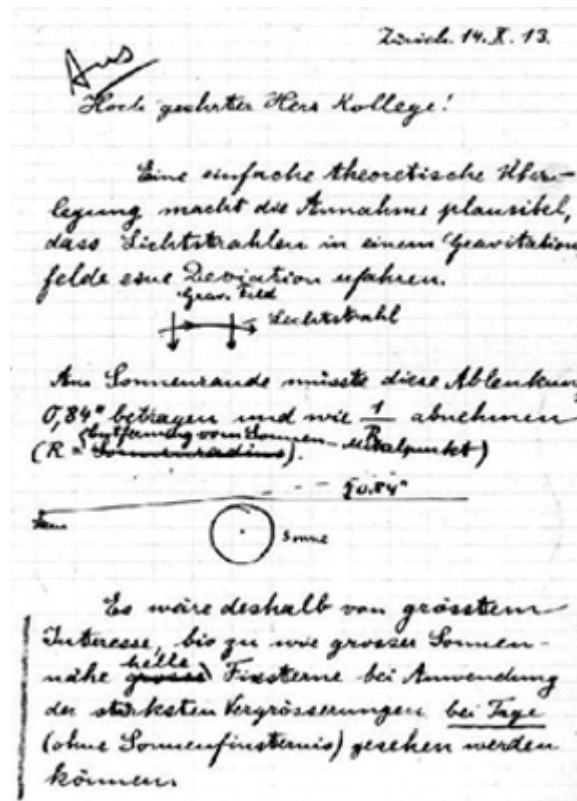 Zürich. 14. X. 13.
Aus
Hoch geehrter Herr Kollege!
Eine einfache theoretische Über-
legung macht die Annahme plausibel,
dass Lichtstrahlen in einem Gravitations
felde eine Deviation erfahren.
Grav. Feld
Lichtstrahl
Am Sonnenrande müsste diese Ablenkung
0,84" betragen und wie 1/R abnehmen
(Entfernung vom Sonnen-Mittelpunkt)
(R = Sonnenradius).
0.84"
Sonne
Es wäre deshalb von grösstem
Interesse, bis zu wie grosser Sonnen-
helle
nähe grosse Fixsterne bei Anwendung
der stärksten Vergrösserungen bei Tage
(ohne Sonnenfinsternis) gesehen werden
können.